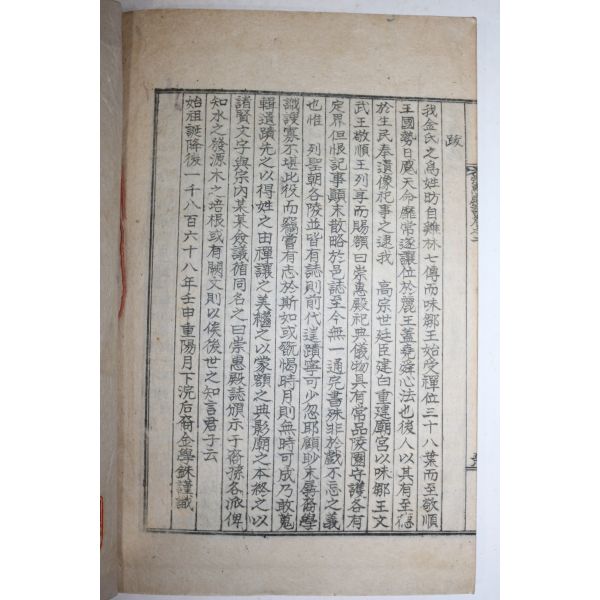 政
我金氏之爲姓昉自雞林七傳而味鄒王始受禪位三十八葉而至敬順
王國勢日蹙天命靡常遂讓位於麗王蓋堯舜心法也後人以其有至德
於生民奉遺像祀事之逮我 高宗世廷臣建白重建廟宮以味鄒王文
武王敬順王列享而賜額曰崇惠殿祀典儀物具有常品陵園守護各有
定界但恨記事顚末散略於邑誌至今無一通完書殊非於戱不忘之義
也惟 列聖朝各陵並皆有誌則前代遺蹟寧可少忽耶顧眇末孱裔學
識謏寡不堪此役而竊嘗有志於斯如或翫愒時月則無時可成乃敢蒐
輯遺蹟先之以得姓之由禪讓之美繼之以蒙額之典影廟之本終之以
諸賢文字與宗內某某僉議循同名之曰崇惠殿誌頒示于裔孫各派俾
知水之發源木之培根或有闕文則以俟後世之知言君子云
始祖誕降後一千八百六十八年壬申重陽月下浣后裔金學銖謹識